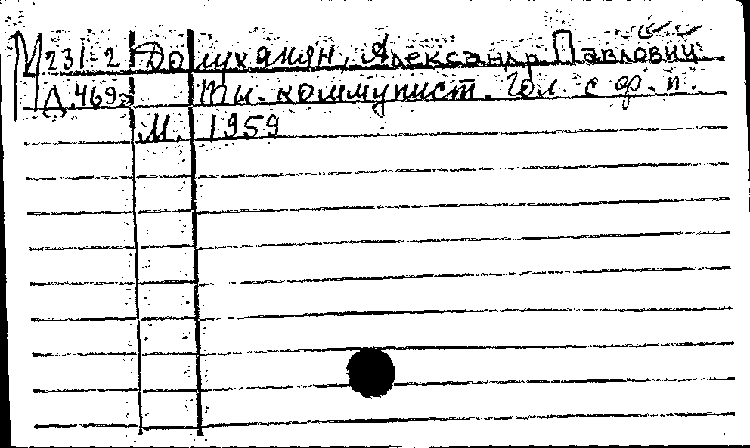 М 231-2 Долуханян, Александр Павлович
Д.469 Ты. коммунист. Гол. с ф. п.
М. 1959